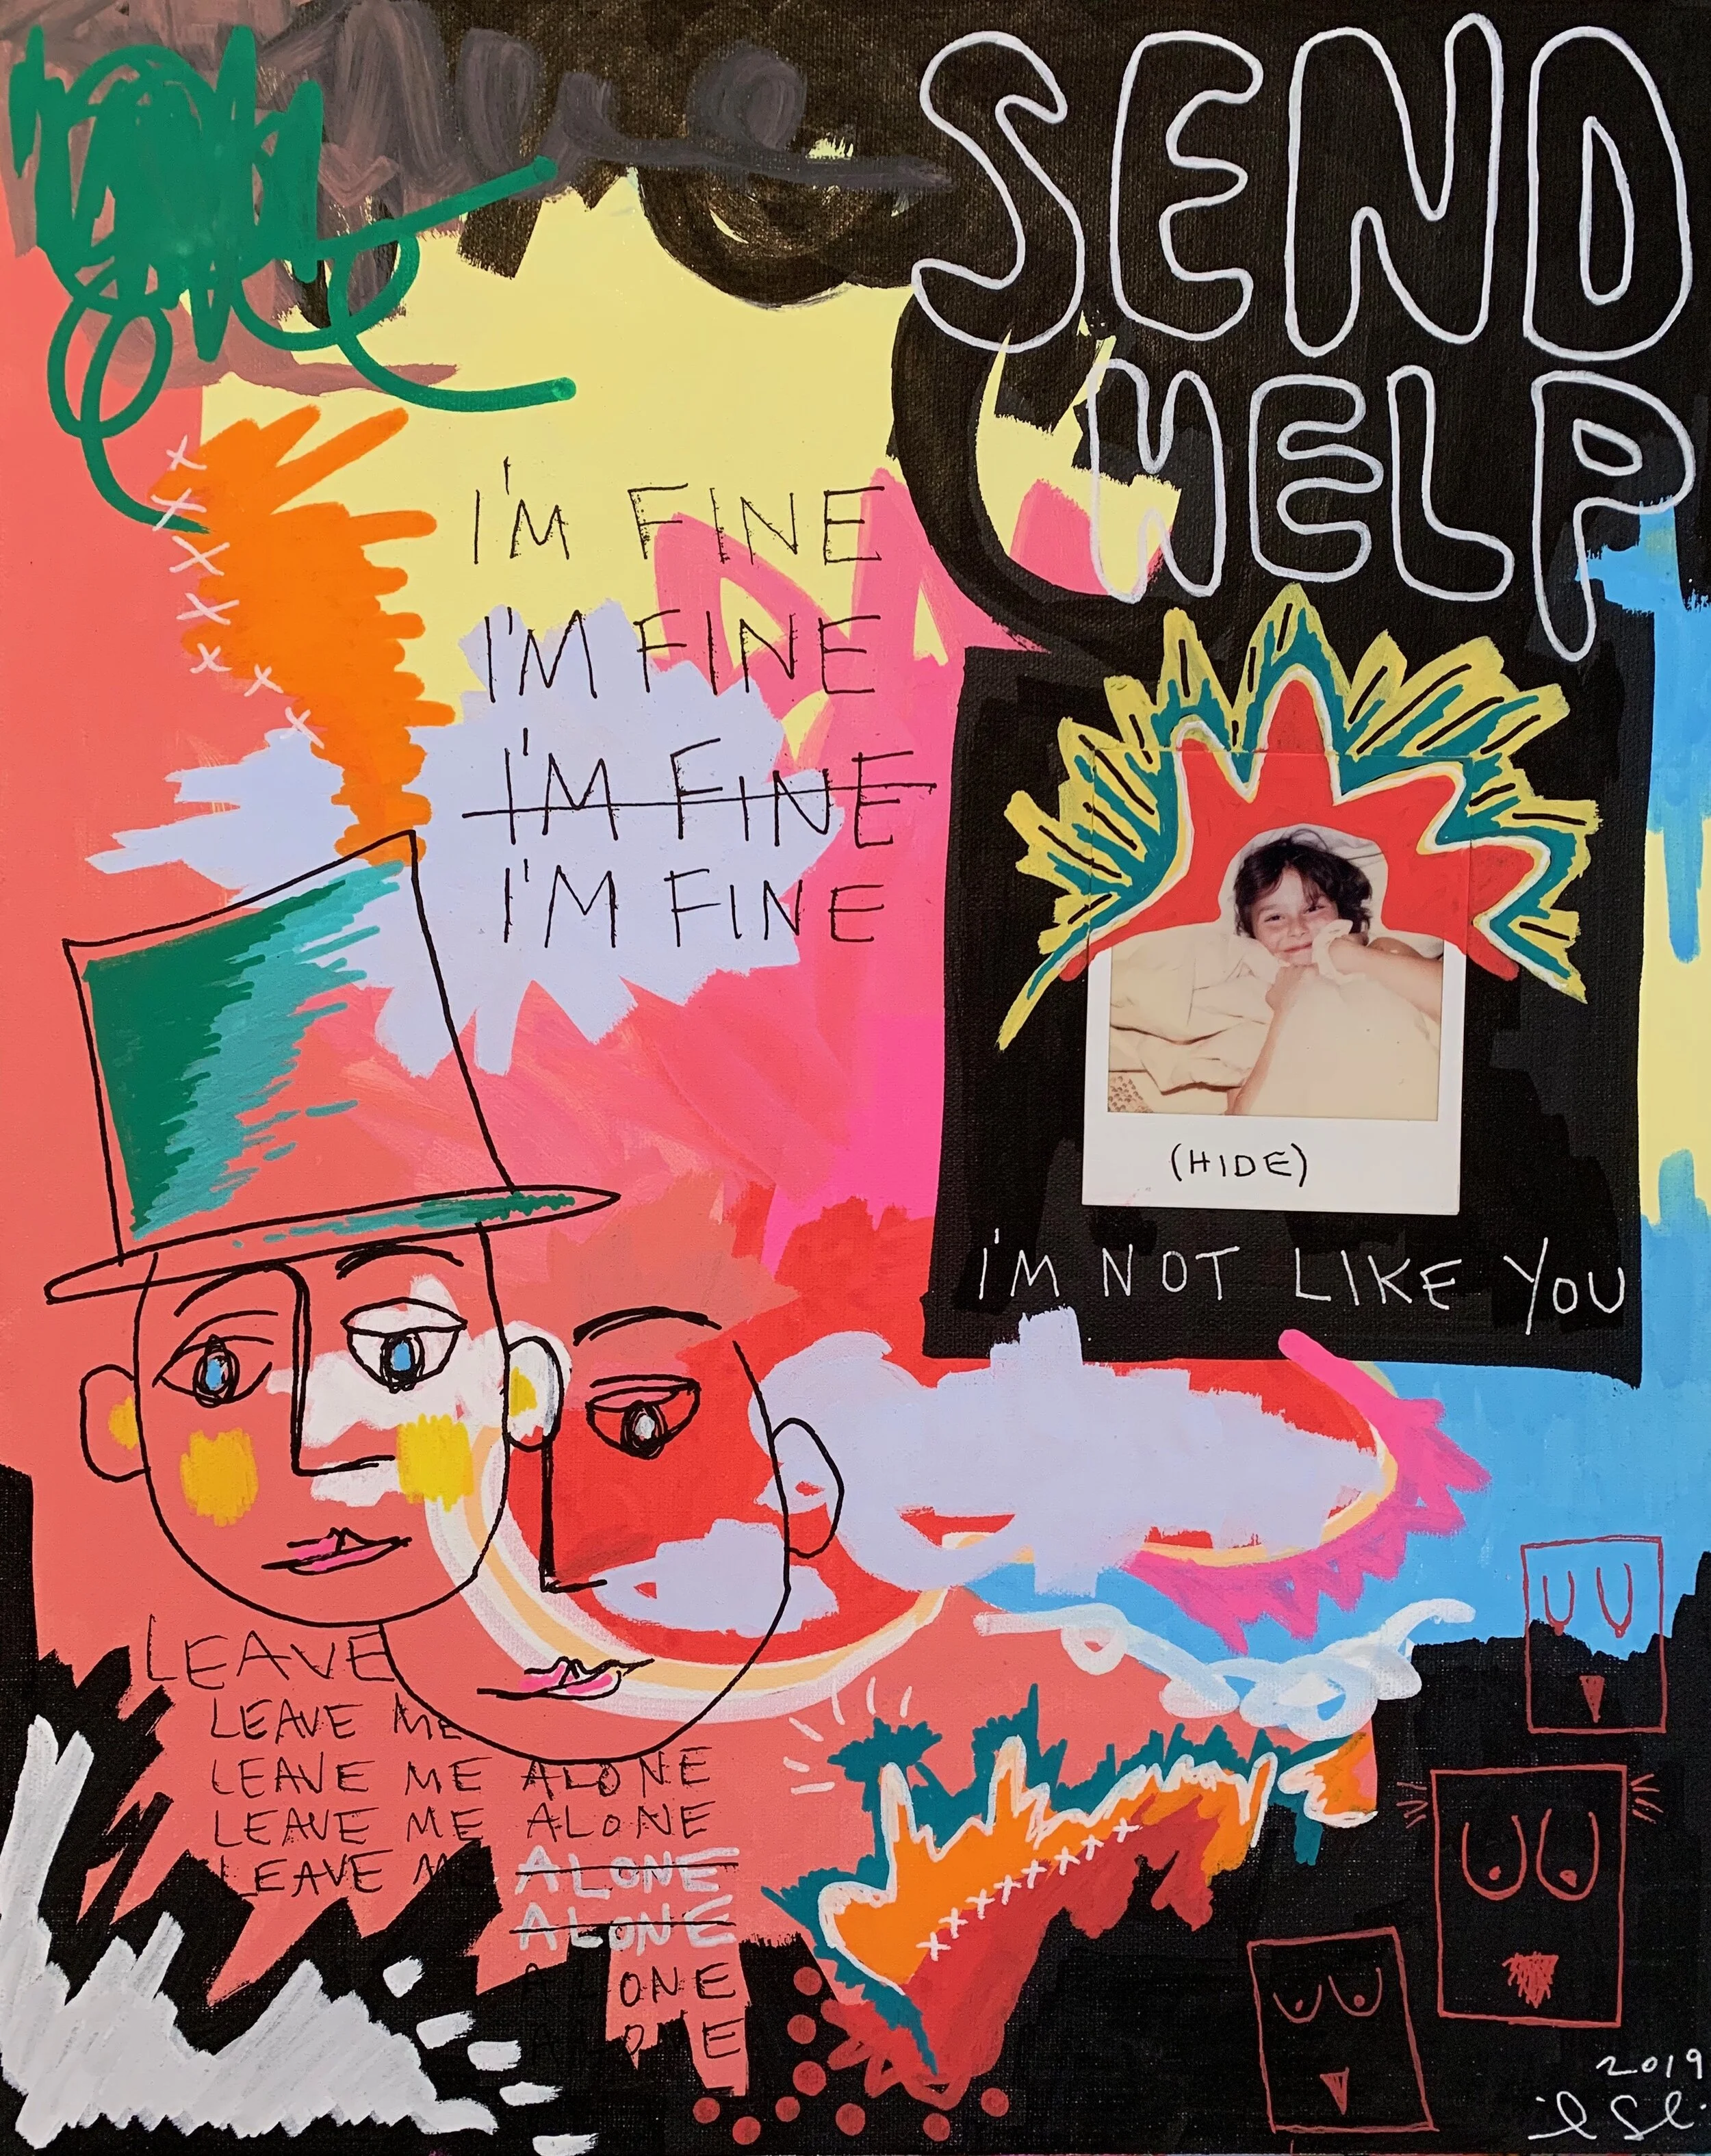 SEND
HELP
I'M FINE
I'M FINE
I'M FINE
I'M FINE
(HIDE)
I'M NOT LIKE YOU
LEAVE
LEAVE ME
LEAVE ME ALONE
LEAVE ME ALONE
LEAVE ME ALONE
ALONE
ALONE
ALONE
2019